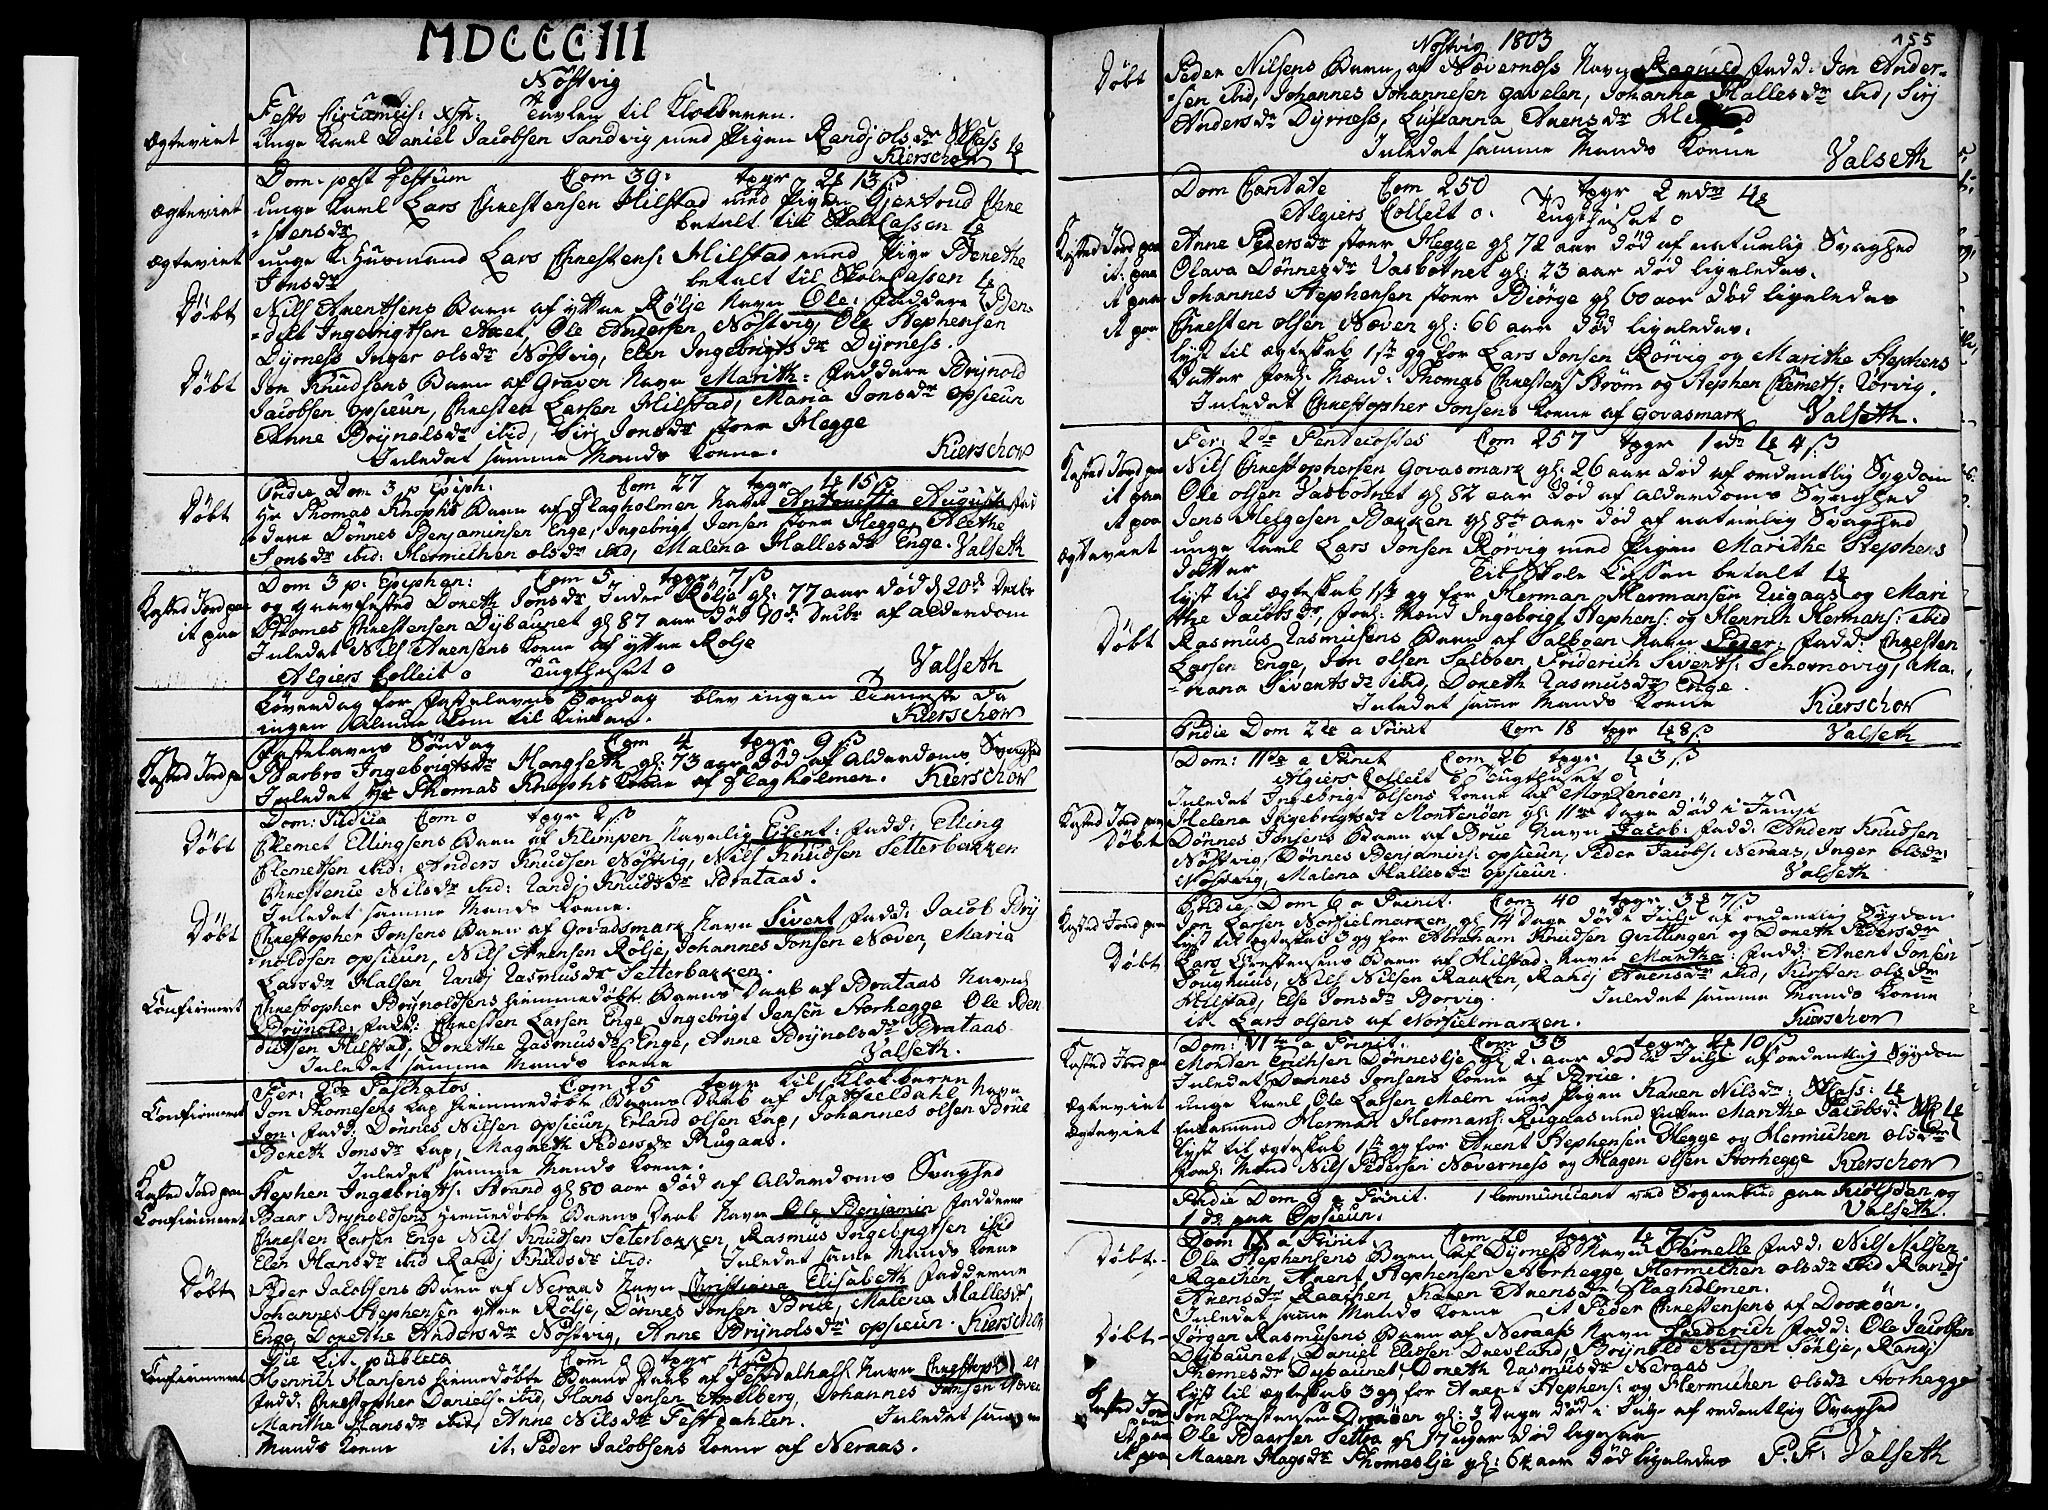 MDCCCIII
Nöstvig
Festo Circumcis: Xsti: Tavlen til Klokkeren.
Ægteviet unge Karl Daniel Jacobsen Sandvig med Pigen Randj olsdr
Kierschow
Dom. post Festum Com 39: tpgr 2 13 ß
Ægteviet unge Karl Lars Christensen Hilstad med Pigen Gjertrud Chre
stensdr betalt til Skole Cassen
Ægteviet unge K: Huusmand Lars Chrestens: Hilstad med Pige Benethe
Jonsdr betalt til Skole Cassen
Døbt Nils Arentsens Barn af yttre Rölje Navn Ole: Faddere Ben-
-dict Ingebrigtsen Aaet, Ole Andersen Nöstvig, Ole Stephensen
Dyrness Inger olsdr Nöstvig, Elen Ingebrigtsdr Dyrness.
Døbt Jon Knudsens Barn af Graven Navn Marith: Faddere Brynold
Jacobsen opsieun, Chresten Larsen Hilstad, Maria Jonsdr opsieun
Anne Brynelsdr ibid, Siri Jonsdr stoer Hegge
Inledet samme Mands Kone. Kierschow
Pridie Dom 3 p Epiph: Com 27 tpgr 15 ß
Døbt Hr Thomas Knophs Barn af Flagholmen Navn Antonetta Augusta Fad
dere Dönnes Benjaminsen Enge, Ingebrigt Jensen stoer Hegge, Alethe
Jonsdr ibid: Hermichen olsdr ibid, Malena Hallesdr Enge. Valseth
Dom 3 p. Epiphan: Com 5 tpgr 7 ß
Kasted Jord paa og Gravfested Doreth Jonsdr Inder Rölje gl: 77 aar død d 20de Decbr
it paa Thomes Chrestensen Dybaunet gl 87 aar død 90de Decbr af alderdom
Inledet Nils Arensens Kone af yttre Rölje
Algiers Collect 0 Tugthuset 0 Valseth
Löverdag for Fastelavens Søndag blev ingen Tieneste da
ingen Almue kom til Kirken. Kierschow
Fastelavens Søndag Com 4 tpgr 9 ß
Kasted Jord paa Barbro Ingebrigtsdr Hongseth gl: 73 aar død af Alderdoms Svaghed
Inledet Hr Thomas Knophs Kone af Flagholmen. Kierschow
Dom: Judica Com 0 tpgr 2 ß
Døbt Clemet Ellingsens Barn af Klimpen Navnlig Eilert: Fadd: Elling
Clemetsen ibid: Anders Knudsen Nöstvig, Nils Knudsen Setterbakken
Chrestence Nilsdr ibid: Randj Knudsdr Brataas.
Inledet samme Mands Kone.
Døbt Chrestopher Jonsens Barn af Govasmark Navn Sivert Fadd: Jacob Bry
-noldsen opsieun, Nils Arensen Rölje, Johannes Jonsen Næven, Maria
Larsdr Halsen, Randj Rasmusdr Setterbakken.
Confirmeret Chrestopher Brynoldsens hiemmedøbte Barns Daab af Brataas Navn
Brynold: Fadd: Chresten Larsen Enge, Ingebrigt Jensen Storhegge Ole Ben
dictsen Hilstad, Dorethe Rasmusdr Enge, Anne Brynolsdr Brataas
Inledet samme Mands Kone Valseth.
Fer: 2de Paschatos Com 25 tpgr til Klokkeren
Confirmeret Jon Thomesens Lap hiemmedøbte Barns Daab af Hatfieldahl Navn
Jon: Fadd: Dönnes Nilsen opsieun, Erland olsen Lap, Johannes olsen Brue
Bereth Jonsdr Lap, Magreth Pedersdr Rugaas.
Inledet samme Mands Kone.
Kasted Jord paa Stephen Ingebrigts: Strand gl 80 aar død af Alderdoms Svaghed
Confirmeret Baar Brynoldsens hiemmedøbte Barns Daab Navn Ole Benjamin Faddere
Chresten Larsen Enge Nils Knudsen Seterbakken, Rasmus Ingebrigtsen ibid
Elen Hansdr ibid Randj Knudsdr ibid: Inledet samme Mands Kone
Døbt Peder Jacobsens Barn af Neraas Navn Christiana Elisabeth Faddere
Johannes Stephensen yttre Rölje, Dönnes Jonsen Brue, Malena Hallesdr
Enge Dorethe Andersdr Nöstvig, Anne Brynolsdr opsieun. Kierschow
Die Lit. publica Com 0 tpgr 4 ß
Confirmeret Henrich Hansens hiemmedøbte Barns Daab af Navn Chrestopher
Fadd: Chrestopher Daniels: ibid, Hans Jensen Aselberg, Johannes Jonsen Næven
Marithe Hansdr ibid, Anne Nilsdr Festdahlen. Inledet samme
Mands Kone it. Peder Jacobsens Kone af Neraas.
Nöstvig 1803 155
Døbt Peder Nilsens Barn af Nævernæss Navn Ragnild Fadd: Jon Ander-
-sen ibid, Johannes Johannesen Gavelen, Johanna Hallesdr ibid, Siri
Andersdr Dyrness, Susanna Arensdr
Inledet samme Mands Kone Valseth
Dom Cantate Com 250 tpgr 2 rdr 4
Algiers Collect 0. Tugthuset 0
Kasted Jord paa Anne Pedersdr stoer Hegge gl 72 aar død af naturlig Svaghed
it: paa Olava Dönnesdr Vasbotnet gl: 23 aar død ligeledes.
it paa Johannes Stephensen stoer Biörge gl 60 aar død ligeledes
it paa Chresten olsen Næven gl: 66 aar død ligeledes.
lyst til ægteskab 1ste gg for Lars Jonsen Rörvig og Marithe Stephens
Datter Forl: Mænd: Thomas Chrestens: Ström og Stephen Clemets: Rörvig.
Inledet Chrestopher Jonsens Kone af Govasmark Valseth.
Fer: 2de Pentecostes Com 257 tpgr 1 rdr 4 ß
Kasted Jord paa Nils Chrestophersen Govasmark gl: 26 aar død af ordentlig Sygdom
it paa Ole olsen Vasbotnet gl 82 aar død af Alderdoms Svaghed
it paa Jens Helgesen Bakken gl 84 aar død af naturlig Svaghed
Ægteviet unge Karl Lars Jonsen Rörvig med Pigen Marithe Stephens
datter Til Skole Cassen betalt
lyst til ægteskab 1ste gg for Herman Hermansen Rugaas og Mari
the Jacobsdr, Forl: Mænd Ingebrigt Stephens: og Henrich Hermans: ibid
Døbt Rasmus Rasmusens Barn af Salboen Navn Peder: Fadd: Chresten
Larsen Enge, Jon olsen Salboen, Friderich Siverts: Schornovig, Ma-
-riana Sivertsdr ibid, Doreth Rasmusdr Enge.
Inledet samme Mands Kone Kierschow
Pridie Dom 2de a Trinit Com 18 tpgr 8 ß Valseth
Dom: 11de a Trinit Com 26 tpgr 3 ß
Algiers Collect 0 Tugthuset 0
Inledet Ingebrigt olsens Kone af Mortenöen
Kasted Jord paa Helena Ingebrigtsdr Mortenöen gl: 11 Dage død i
Døbt Dönnes Jonsens Barn af Brue Navn Jacob: Fadd: Anders Knudsen
Nöstvig, Dönnes Benjamins: opsieun, Peder Jacobs: Neraas, Inger olsdr:
Nöstvig, Malena Hallesdr opsieun. Valseth
Pridie Dom 6 a Trinit. Com 40 tpgr 3 7 ß
Kasted Jord paa Jon Larsen Norfielmarken gl 14 Dage død i af ordentlig Sygdom
lyst til ægteskab 3 gg for Abraham Knudsen Girtlingen og Doreth Pedersdr
Døbt Lars Chrestensens Barn af Hilstad: Navn Marthe: Fadd: Arent Jonsen
Nils Nilsen Raaken, Randj Arensdr ibid, Kirsten olsdr
Hilstad, Else Jonsdr Borvig. Inledet samme Mands Kone
it Lars olsens af Norfielmarken. Kierschow
Dom: VIte a Trinit. Com 33 tpgr 10 ß
Kasted Jord paa Morten Erichsen Dönneslje gl 2 aar død af ordentlig Sygdom
Inledet Dönnes Jonsens Kone af Brue.
Ægteviet unge Karl Ole Larsen Malm med Pigen Karen Nilsdr:
Ægteviet Enkemand Herman Hermans: Rugaas med Enken Marithe Jacobsdr
lyst til ægteskab 1ste gg for Arent Stephensen Hegge og Hermichen olsdr
Forl: Mænd Nils Pedersen Nævernæss og Hagen olsen Storhegge Kierschow
Pridie Dom 9 a Trinit. 1 Communicant ved Sognebud paa Kiölsöen og
1 do paa Opsieun. Valseth.
Dom IX a Trinit Com 20 tpgr 7 ß
Døbt Ole Stephensens Barn af Dyrness Navn Pernelle Fadd: Nils Nilsen
Raachen, Arent Stephensen Storhegge Hermichen olsdr ibid Randj
Arensdr Raachen, Karen Arensdr Flagholmen.
Inledet samme Mands Kone it Peder Chrestensens af Dooröen.
Døbt Jörgen Rasmusens Barn af Neraass Navn Frederich Fadd: Ole Jacobsen
Dybaunet, Daniel Eliesen Drevland, Brynold Nilsen Rölje, Randj
Thomesdr Dybaunet, Doreth Rasmusdr Neraas
lyst til ægteskab 3 gg for Arent Stephens: og Hermichen olsdr Storhegge
Kasted Jord paa Jon Chrestensen Dooröen gl: 3 Dage død i af ordentlig Svaghed
it paa Ole Baarsen Settra gl 17 uger død ligesaa
it paa Maren Hagsdr Thomeslje gl: 64 aar død ligeledes P. F. Valseth